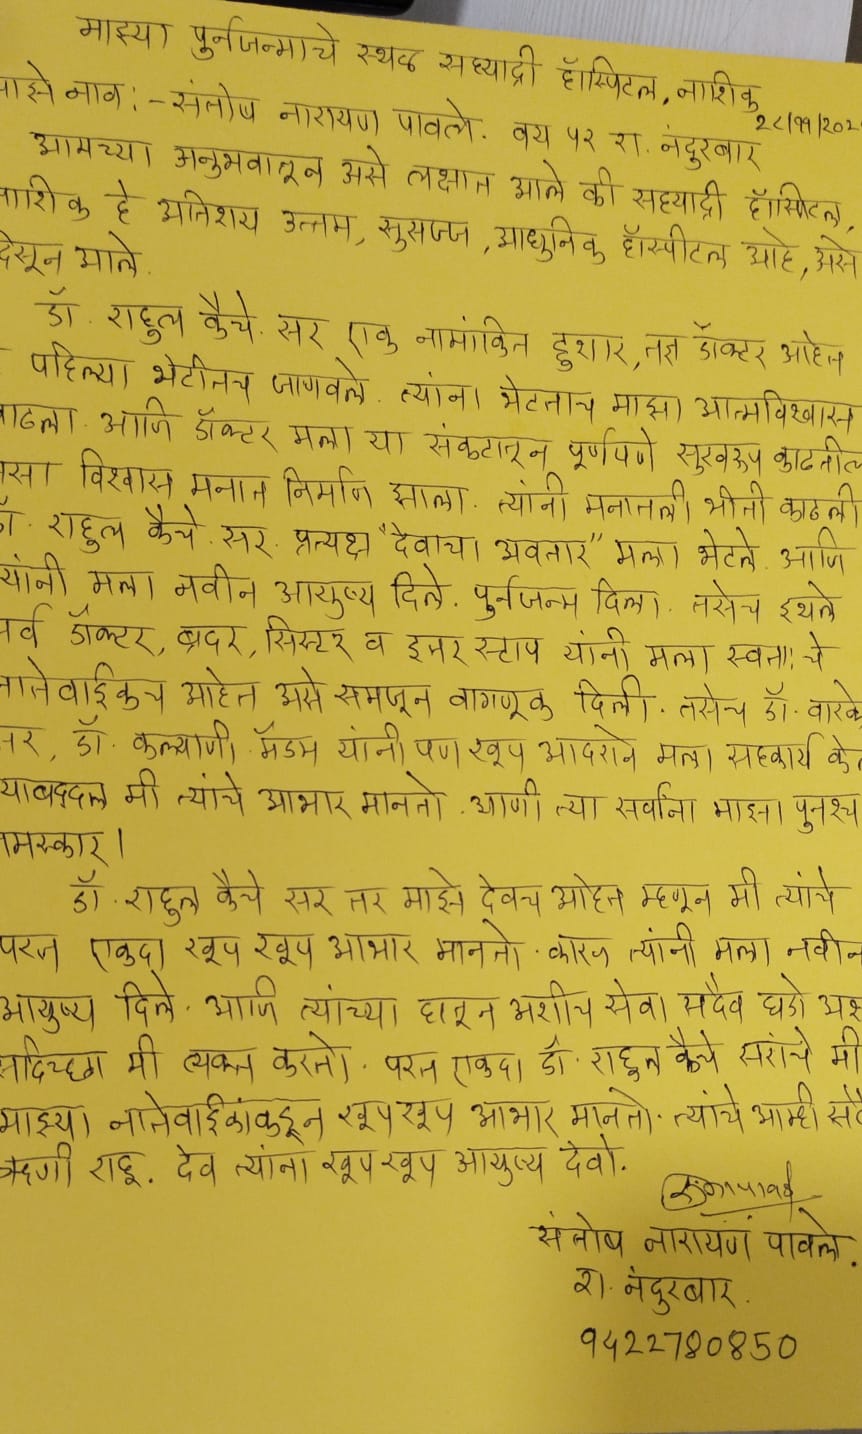 माझ्या पुर्नजन्माचे स्थळ सह्याद्री हॉस्पिटल, नाशिक
२८/११/202
माझे नाव :- संतोष नारायण पावले. वय ५२ रा. नंदुरबार
आमच्या अनुभवातून असे लक्षात आले की सह्याद्री हॉस्पिटल,
नाशिक हे अतिशय उत्तम, सुसज्ज, आधुनिक हॉस्पीटल आहे, असे
देसून आले.
डॉ. राहुल कैचे. सर एक नामांकित हुशार, तज्ञ डॉक्टर आहेत
पहिल्या भेटीतच जाणवले. त्यांना भेटताच माझा आत्मविश्वास
वाढला. आणि डॉक्टर मला या संकटातून पूर्णपणे सुखरूप काढतील
असा विश्वास मनात निर्माण झाला. त्यांनी मनातली भीती काढली
डॉ. राहुल कैचे. सर. प्रत्यक्ष "देवाचा अवतार" मला भेटले. आणि
त्यांनी मला नवीन आयुष्य दिले. पुर्नजन्म दिला. तसेच इथले
सर्व डॉक्टर, ब्रदर, सिस्टर व इतर स्टाप यांनी मला स्वताः चे
नातेवाईकच आहेत असे समजून वागणूक दिली. तसेच डॉ. वारके
सर, डॉ. कल्याणी मॅडम यांनी पण खूप आदराने मला सहकार्य के
याबद्दल मी त्यांचे आभार मानतो. आणी त्या सर्वांना माझा पुनश्च
नमस्कार।
डॉ. राहुल कैचे सर तर माझे देवच आहेत म्हणून मी त्यांचे
परत एकदा खूप खूप आभार मानतो. कारण त्यांनी मला नवीन
आयुष्य दिले. आणि त्यांच्या हातून अशीच सेवा सदैव घडो अश
सदिच्छा मी व्यक्त करतो. परत एकदा डॉ. राहुल कैचे सरांचे मी
माझ्या नातेवाईकांकडून खूप खूप आभार मानतो. त्यांचे आम्ही सदै
ऋणी राहू. देव त्यांना खूप खूप आयुष्य देवो.
संतोष नारायण पावले.
रा. नंदुरबार.
9422780850